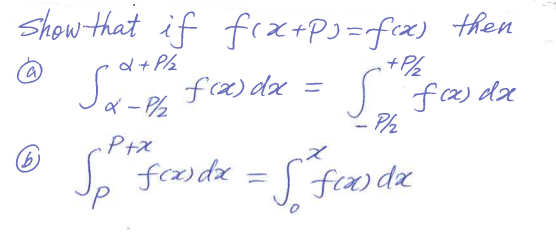 Show that if f(x+P)=f(x) then
(a) ∫_{α-P/2}^{α+P/2} f(x) dx = ∫_{-P/2}^{+P/2} f(x) dx
(b) ∫_{P}^{P+x} f(x) dx = ∫_{0}^{x} f(x) dx